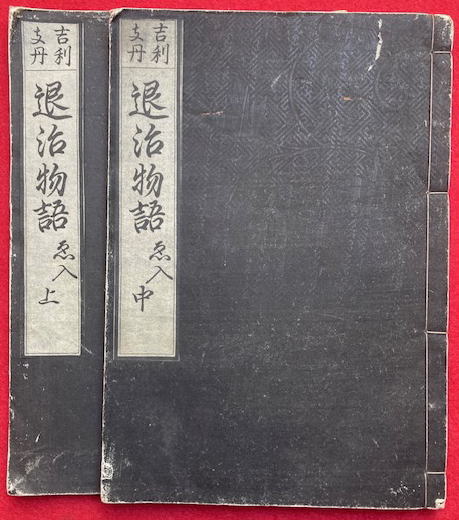 吉利
支丹
退治物語 ゑ入 中
吉利
支丹
退治物語 ゑ入 上